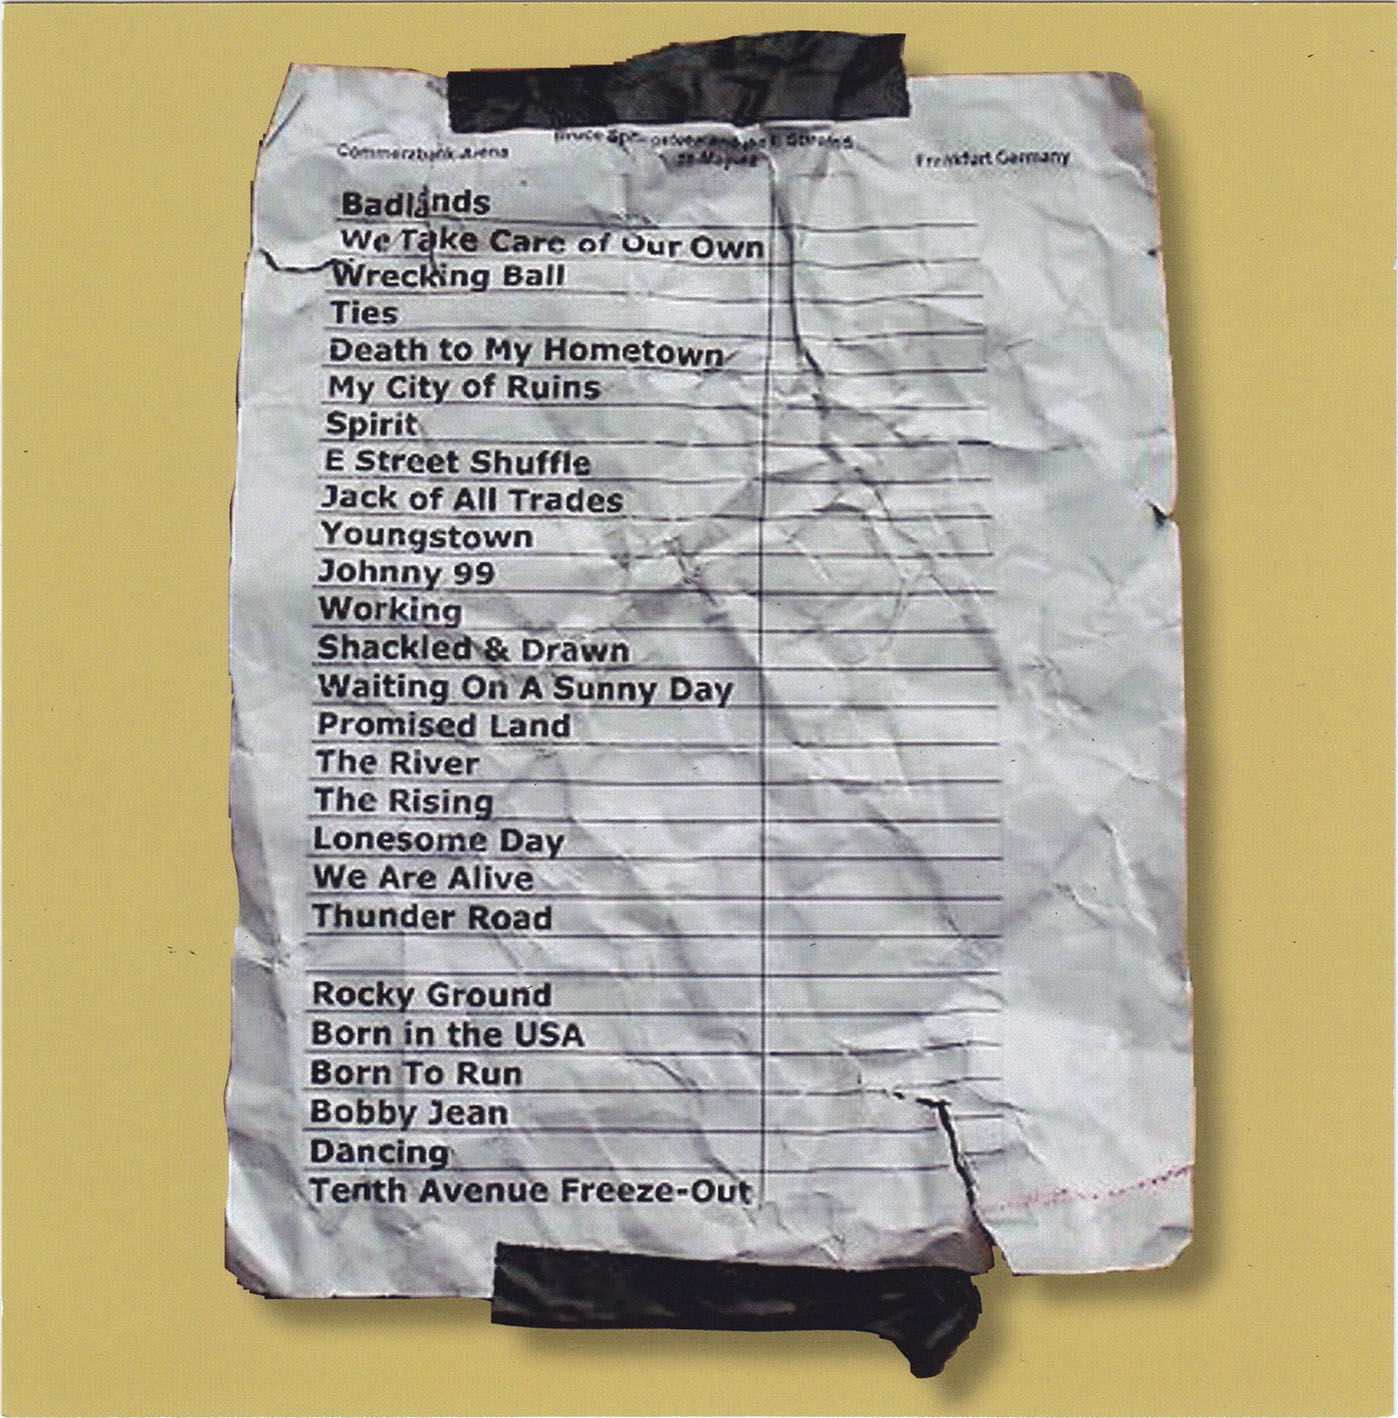 Bruce
Commerzbank Arena
Frankfurt Germany
Badlands
We Take Care of Our Own
Wrecking Ball
Ties
Death to My Hometown
My City of Ruins
Spirit
E Street Shuffle
Jack of All Trades
Youngstown
Johnny 99
Working
Shackled & Drawn
Waiting On A Sunny Day
Promised Land
The River
The Rising
Lonesome Day
We Are Alive
Thunder Road
Rocky Ground
Born in the USA
Born To Run
Bobby Jean
Dancing
Tenth Avenue Freeze-Out